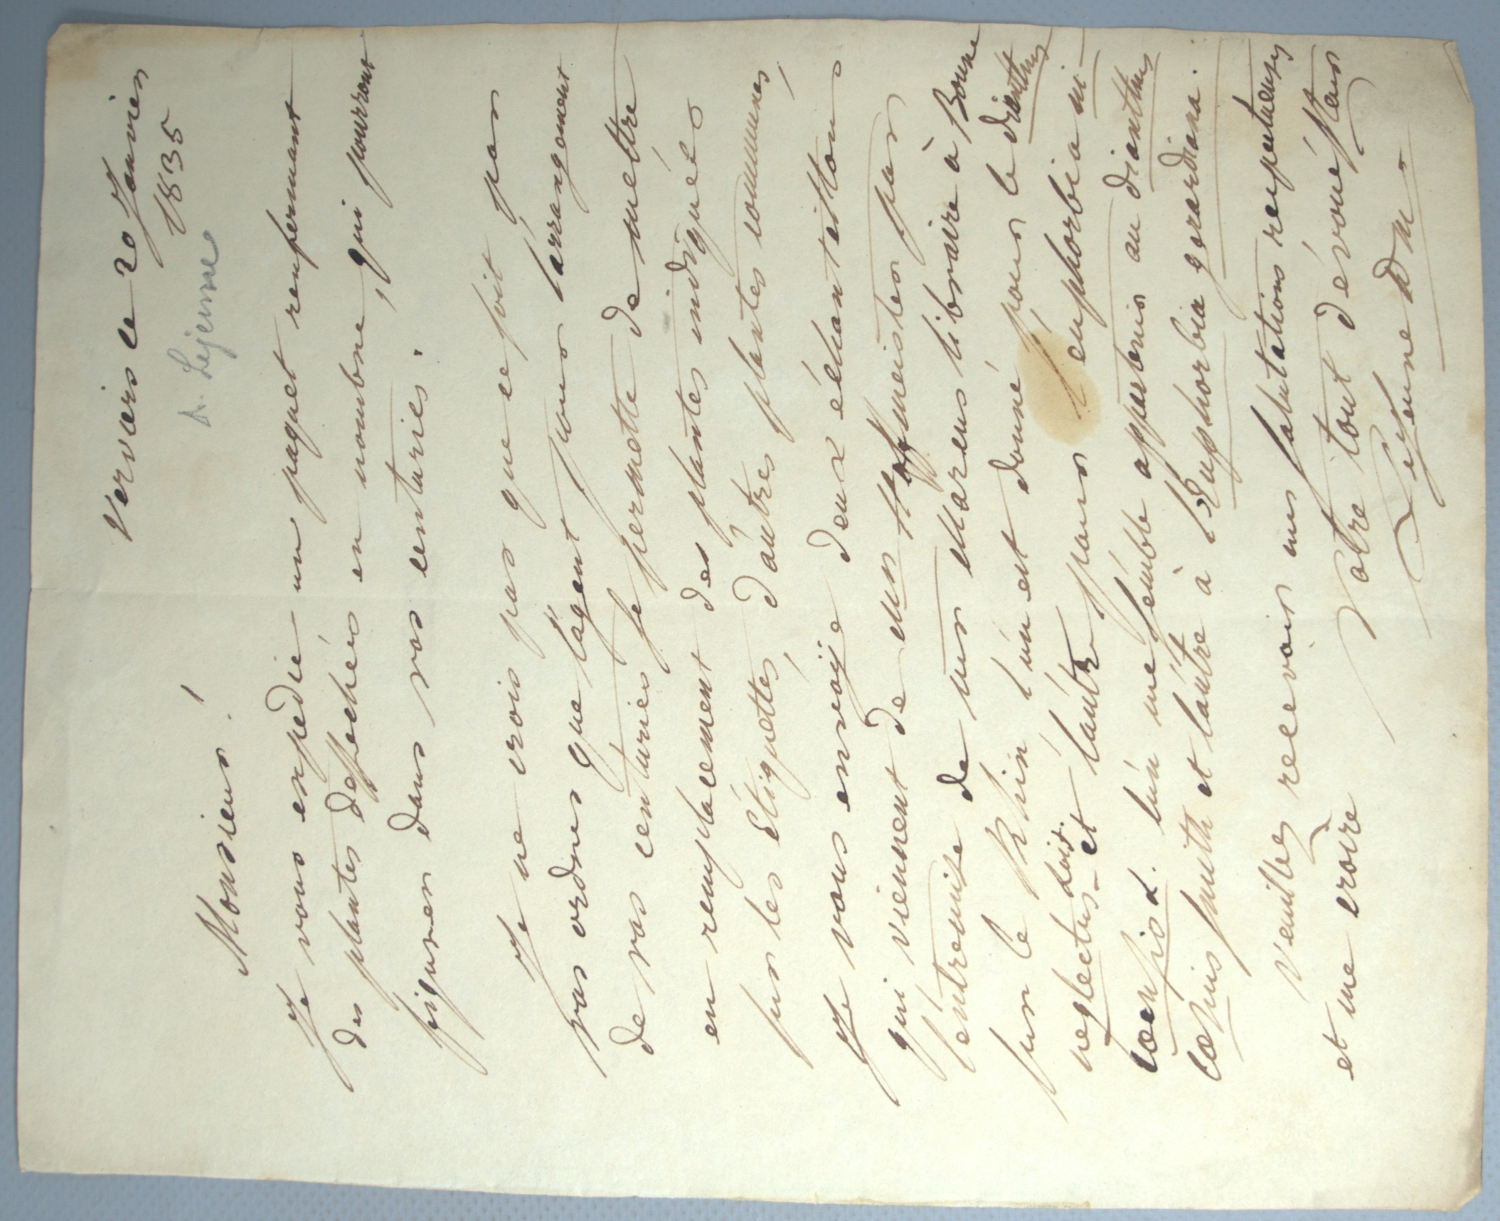 Verviers ce 20 Janvier
1835
A. Lejeune
Monsieur!
Je vous expedie un paquet renfermant
des plantes dessechées en nombre, qui pourront
figurer dans vos centuries.
Je ne crois pas que ce soit par
vos ordres que l'agent pour l'arrangement
de vos centuries se permette de mettre
en remplacement des plantes indiqués
sur les Etiquettes, d'autres plantes communes,
Je vous envoÿe deux échantillons
qui viennent de Mr Hoffmeister par
l'entremise de mr Marcus libraire à Bonne
sur le Rhin l'un est donné pour le dianthus
neglectus Lois. et l'autre pour l'euphorbia ni-
caensis L. l'un me semble appartenir au dianthus
cæsius smith et l'autre à l'Euphorbia gerardiana.
Veuillez recevoir mes salutations respectueuses
et me croire Votre tout dévoué
Lejeune DM